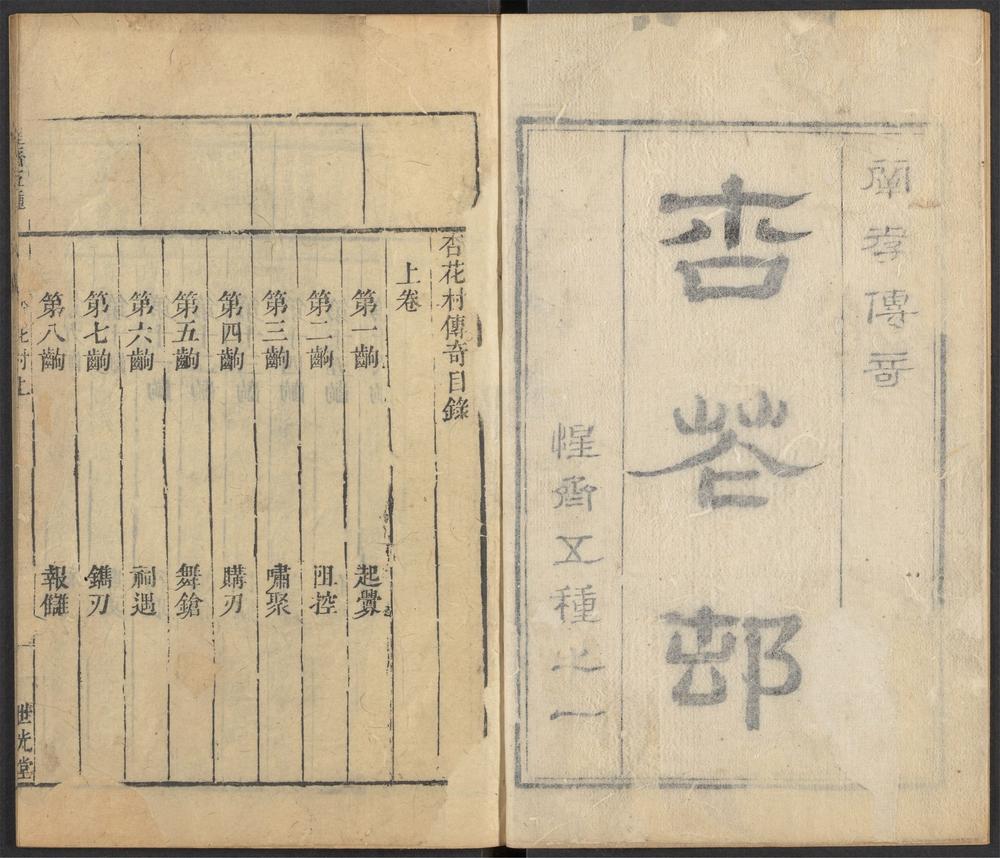 闡孝傳奇
杏花邨
惺齋五種之一
杏花村傳奇目錄
上卷
第一齣 起釁
第二齣 阻控
第三齣 嘯聚
第四齣 購刃
第五齣 舞鎗
第六齣 祠遇
第七齣 鐫刃
第八齣 報讎
惺齋五種 杏花村上 一 世光堂